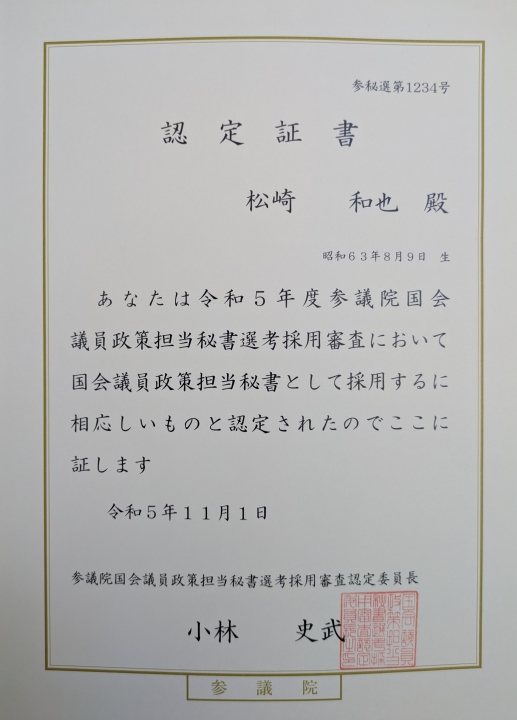 参秘選第1234号
認定証書
松崎　和也　殿
昭和６３年８月９日　生
あなたは令和５年度参議院国会
議員政策担当秘書選考採用審査において
国会議員政策担当秘書として採用するに
相応しいものと認定されたのでここに
証します
令和５年１１月１日
参議院国会議員政策担当秘書選考採用審査認定委員長
小林　史武
参議院